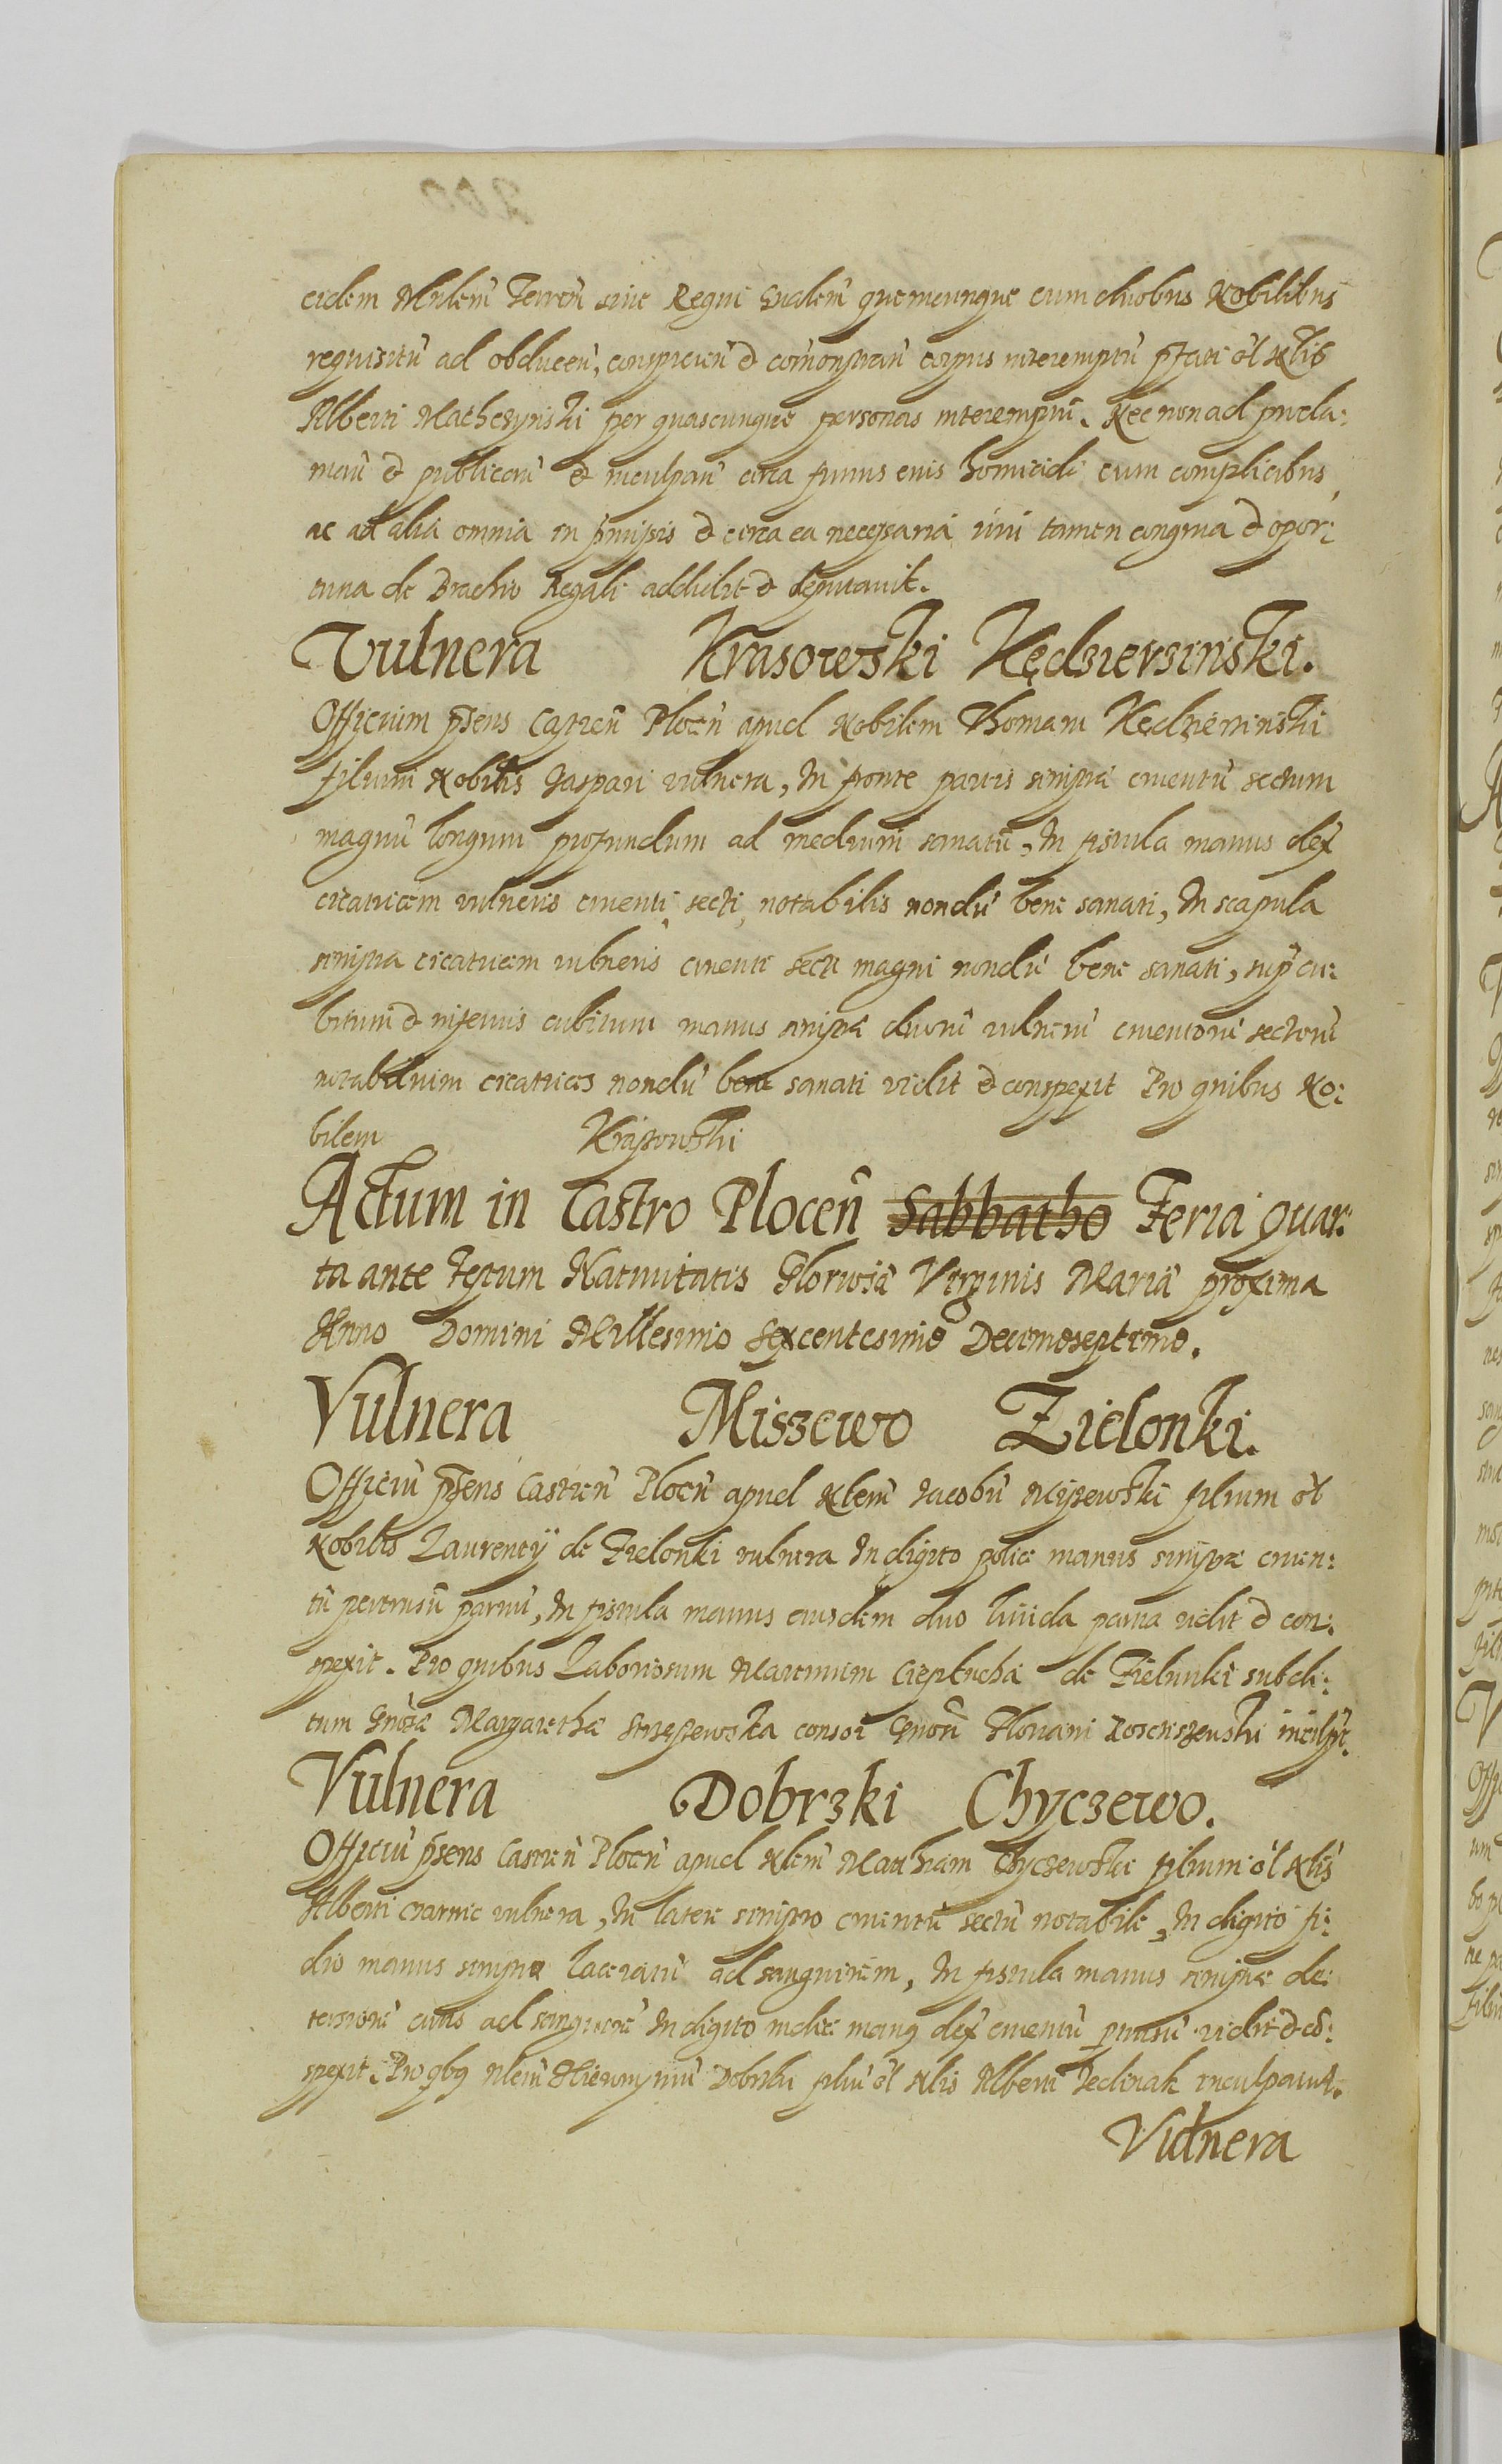 eidem Mńlem̄ Terreń siue Regni Gńalem̄ quemcunque cum duobus Nobilibus
requisitū ad obduceń, conspicień & com̄onstrań corpus interemptū pt̄ati ol̄ Nlis
Alberti Mathczynski per quascunque personas interempti. Nec non ad procla:
mań & publicań & inculpań circa funus eius homicidi cum complicibus
ac ad alia omnia in pr̄missis & circa ea necessaria iuri tamen congrua & opor:
tuna de Brachio Regali addidit & deputauit.
Vulnera Krasowski Kędzierzinski.
Officium pn̄s Castreń Ploceń apud Nobilem Thomam Kędzierzinski
filium Nobilis Gaspari vulnera, In fronte partis sinistræ cruentū sectum
magnū longum profundum ad medium sanatū, In fistula manus dex
cicatricem vulneris cruenti secti notabilis nondū bene sanati, In scapula
sinistra cicatricem vulneris cruenti secti magni nondū bene sanati, sup cu:
bitum & inferius cubitum manus sinistræ duorū vulnerū cruentorū sectorū
notabilium cicatrices nondū bene sanati vidit & conspexit Pro quibus No:
bilem Krassowski
Actum in Castro Ploceń Sabbatho Feria quar:
ta ante festum Natiuitatis Gloriosæ Virginis Mariæ proxima
Anno Domini Millesimo Sexcentesimo Decimoseptimo.
Vulnera Miszewo Zielonki.
Officiū pn̄s Castreń Ploceń apud Nlem̄ Jacobū Miszewski filium ol̄
Nobilis Laurentij de Zielonki vulnera In digito police manus sinistræ cruen:
tū pertrusū paruū, In fistula manus eiusdem duo liuida parua vidit & con:
spexit. Pro quibus Laboriosum Martinum Ciepłucha de Zielunki subdi:
tum Gnosæ Margarethæ Strzeszewska consor Gnosi Floriani Kosciszewski inculpt.
Vulnera Dobrzki Chyczewo.
Officiū pn̄s Castreń Ploceń apud Nlem̄ Mathiam Chyczewski filium ol̄ Nlis
Alberti Czarnie vulnera, In latere sinistro cruentū sectū notabile, In digito fi:
dio manus sinistræ laceratū ad sanguinem, In fistula manus sinistræ de:
tersionē cutis ad sanguinē In digito indice manq dex cruentū ptrusū vidit & cō:
spexit. Pro qbq Nlem̄ Hieronymū Dobrski filiū ol̄ Nlis Alberti Jedinak inculpauit.
Vulnera